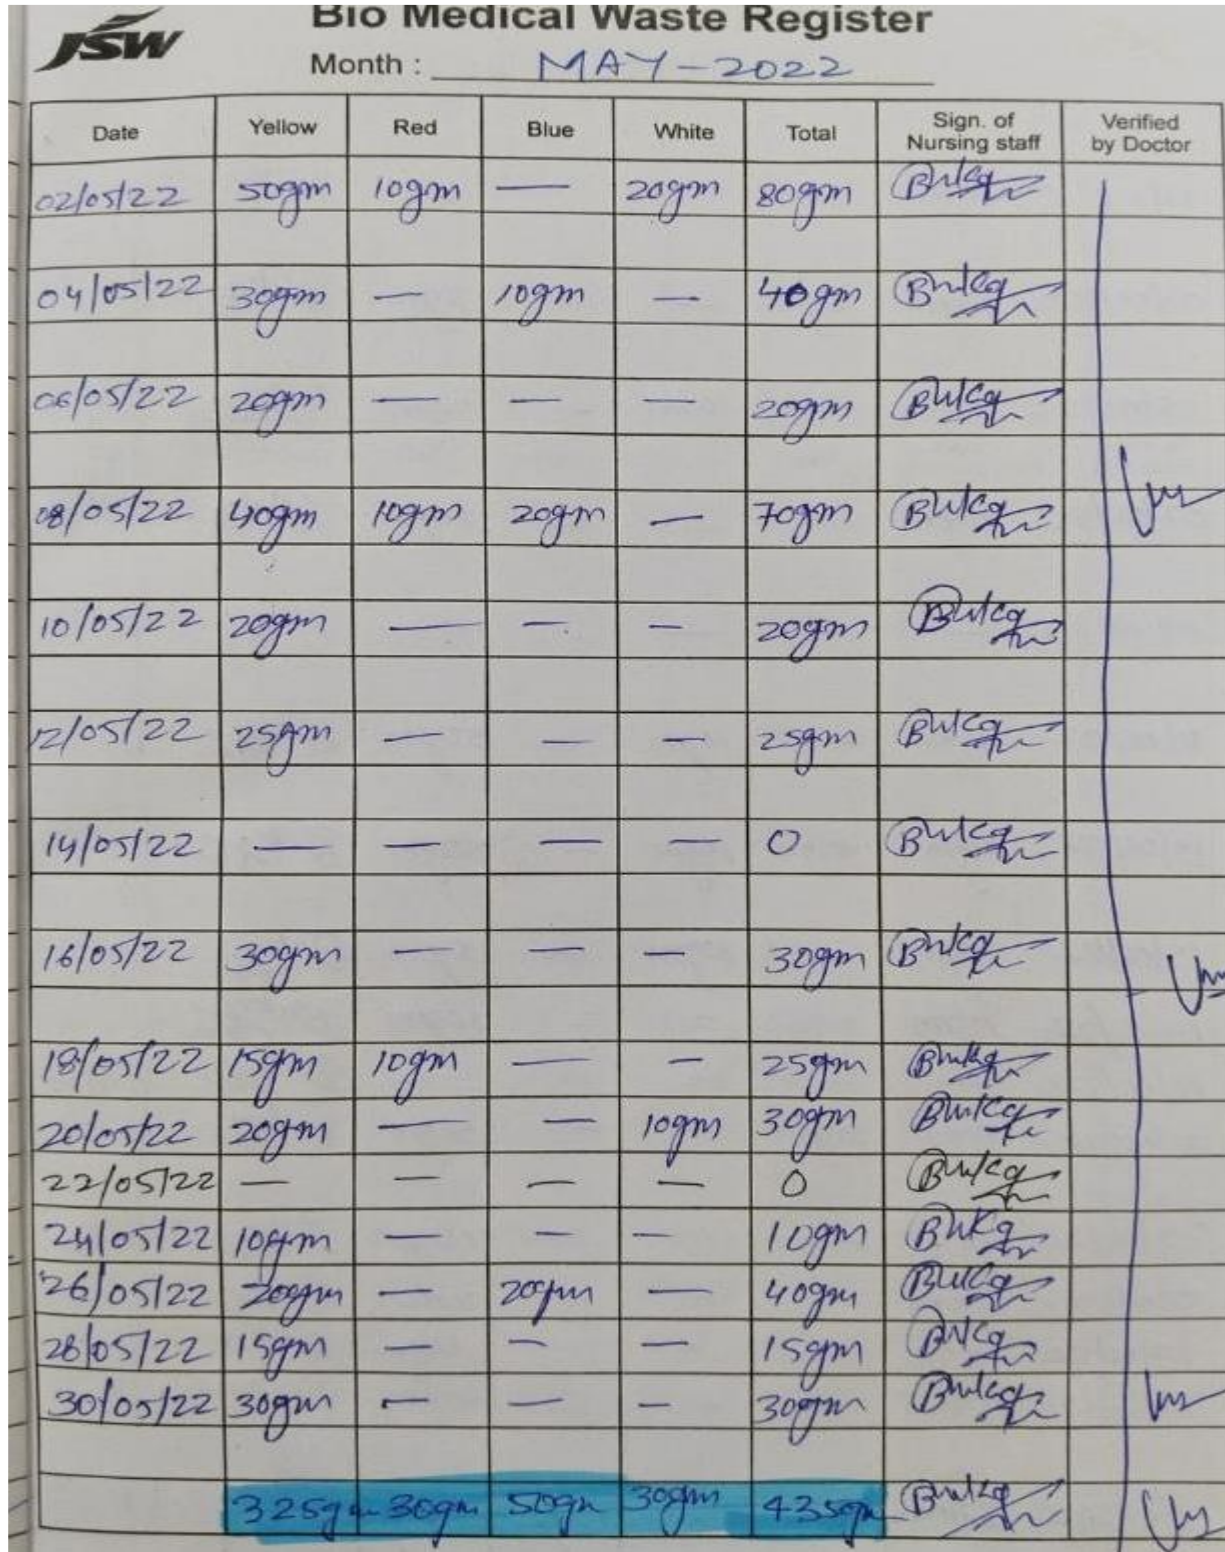 JSW
Bio Medical Waste Register
Month : MAY-2022
Date Yellow Red Blue White Total Sign. of Nursing staff Verified by Doctor
02/05/22 50gm 10gm — 20gm 80gm
04/05/22 30gm — 10gm — 40gm
06/05/22 20gm — — — 20gm
08/05/22 40gm 10gm 20gm — 70gm
10/05/22 20gm — — — 20gm
12/05/22 25gm — — — 25gm
14/05/22 — — — — 0
16/05/22 30gm — — — 30gm
18/05/22 15gm 10gm — — 25gm
20/05/22 20gm — — 10gm 30gm
22/05/22 — — — — 0
24/05/22 10gm — — — 10gm
26/05/22 20gm — 20gm — 40gm
28/05/22 15gm — — — 15gm
30/05/22 30gm — — — 30gm
325gm 30gm 50gm 30gm 435gm